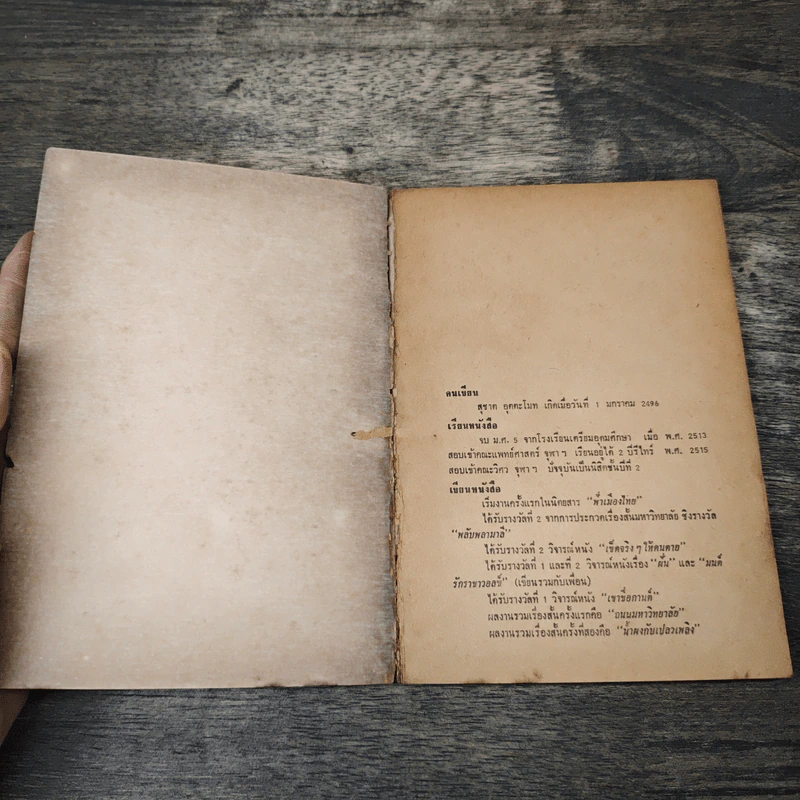 คนเขียน
สุชาค อุคคะโมท เกิดเมื่อวันที่ 1 มกราคม 2496
เรียนหนังสือ
จบ ม.ศ. 5 จากโรงเรียนเตรียมอุดมศึกษา เมื่อ พ.ศ. 2513
สอบเข้าคณะแพทย์ศาสตร์ จุฬา ฯ เรียนอยู่ได้ 2 ปีรีไทร์ พ.ศ. 2515
สอบเข้าคณะวิศว จุฬา ฯ ปัจจุบันเป็นนิสิตชั้นปีที่ 2
เขียนหนังสือ
เริ่มงานครั้งแรกในนิตยสาร “ฟ้าเมืองไทย”
ได้รับรางวัลที่ 2 จากการประกวดเรื่องสั้นมหาวิทยาลัย ชิงรางวัล
“พลับพลามาลี”
ได้รับรางวัลที่ 2 วิจารณ์หนัง “เช็ดจริง ๆ ให้ดนตาย”
ได้รับรางวัลที่ 1 และที่ 2 วิจารณ์หนังเรื่อง “ฝัน” และ “มนต์
รักราชาวอลซ์” (เขียนรวมกับเพื่อน)
ได้รับรางวัลที่ 1 วิจารณ์หนัง “เขาชื่อกานต์”
ผลงานรวมเรื่องสั้นครั้งแรกคือ “ถนนมหาวิทยาลัย”
ผลงานรวมเรื่องสั้นครั้งที่สองคือ “น้ำผึ้งกับเปลวเพลิง”